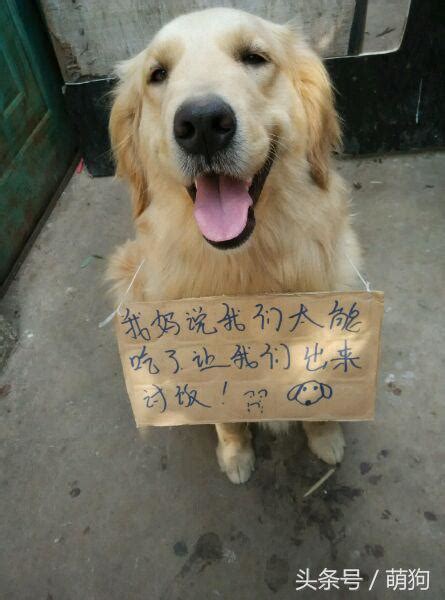 我妈说我们太能
吃了让我们出来
讨饭！
头条号／萌狗